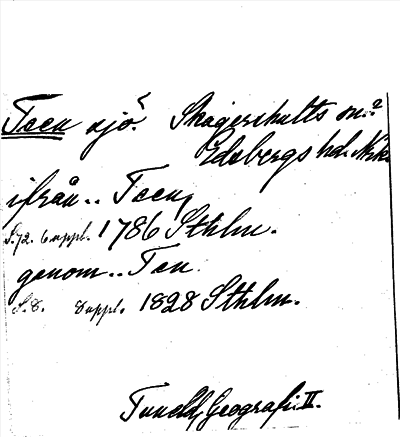 Teen sjö? Skagershults sn.?
Edsbergs hd. Nrk.
ifrån.. Teen,
S. 72. 6 uppl. 1786 Sthlm.
genom.. Ten
S. 8. 8 uppl. 1828 Sthlm.
Tuneld, Geografi II.